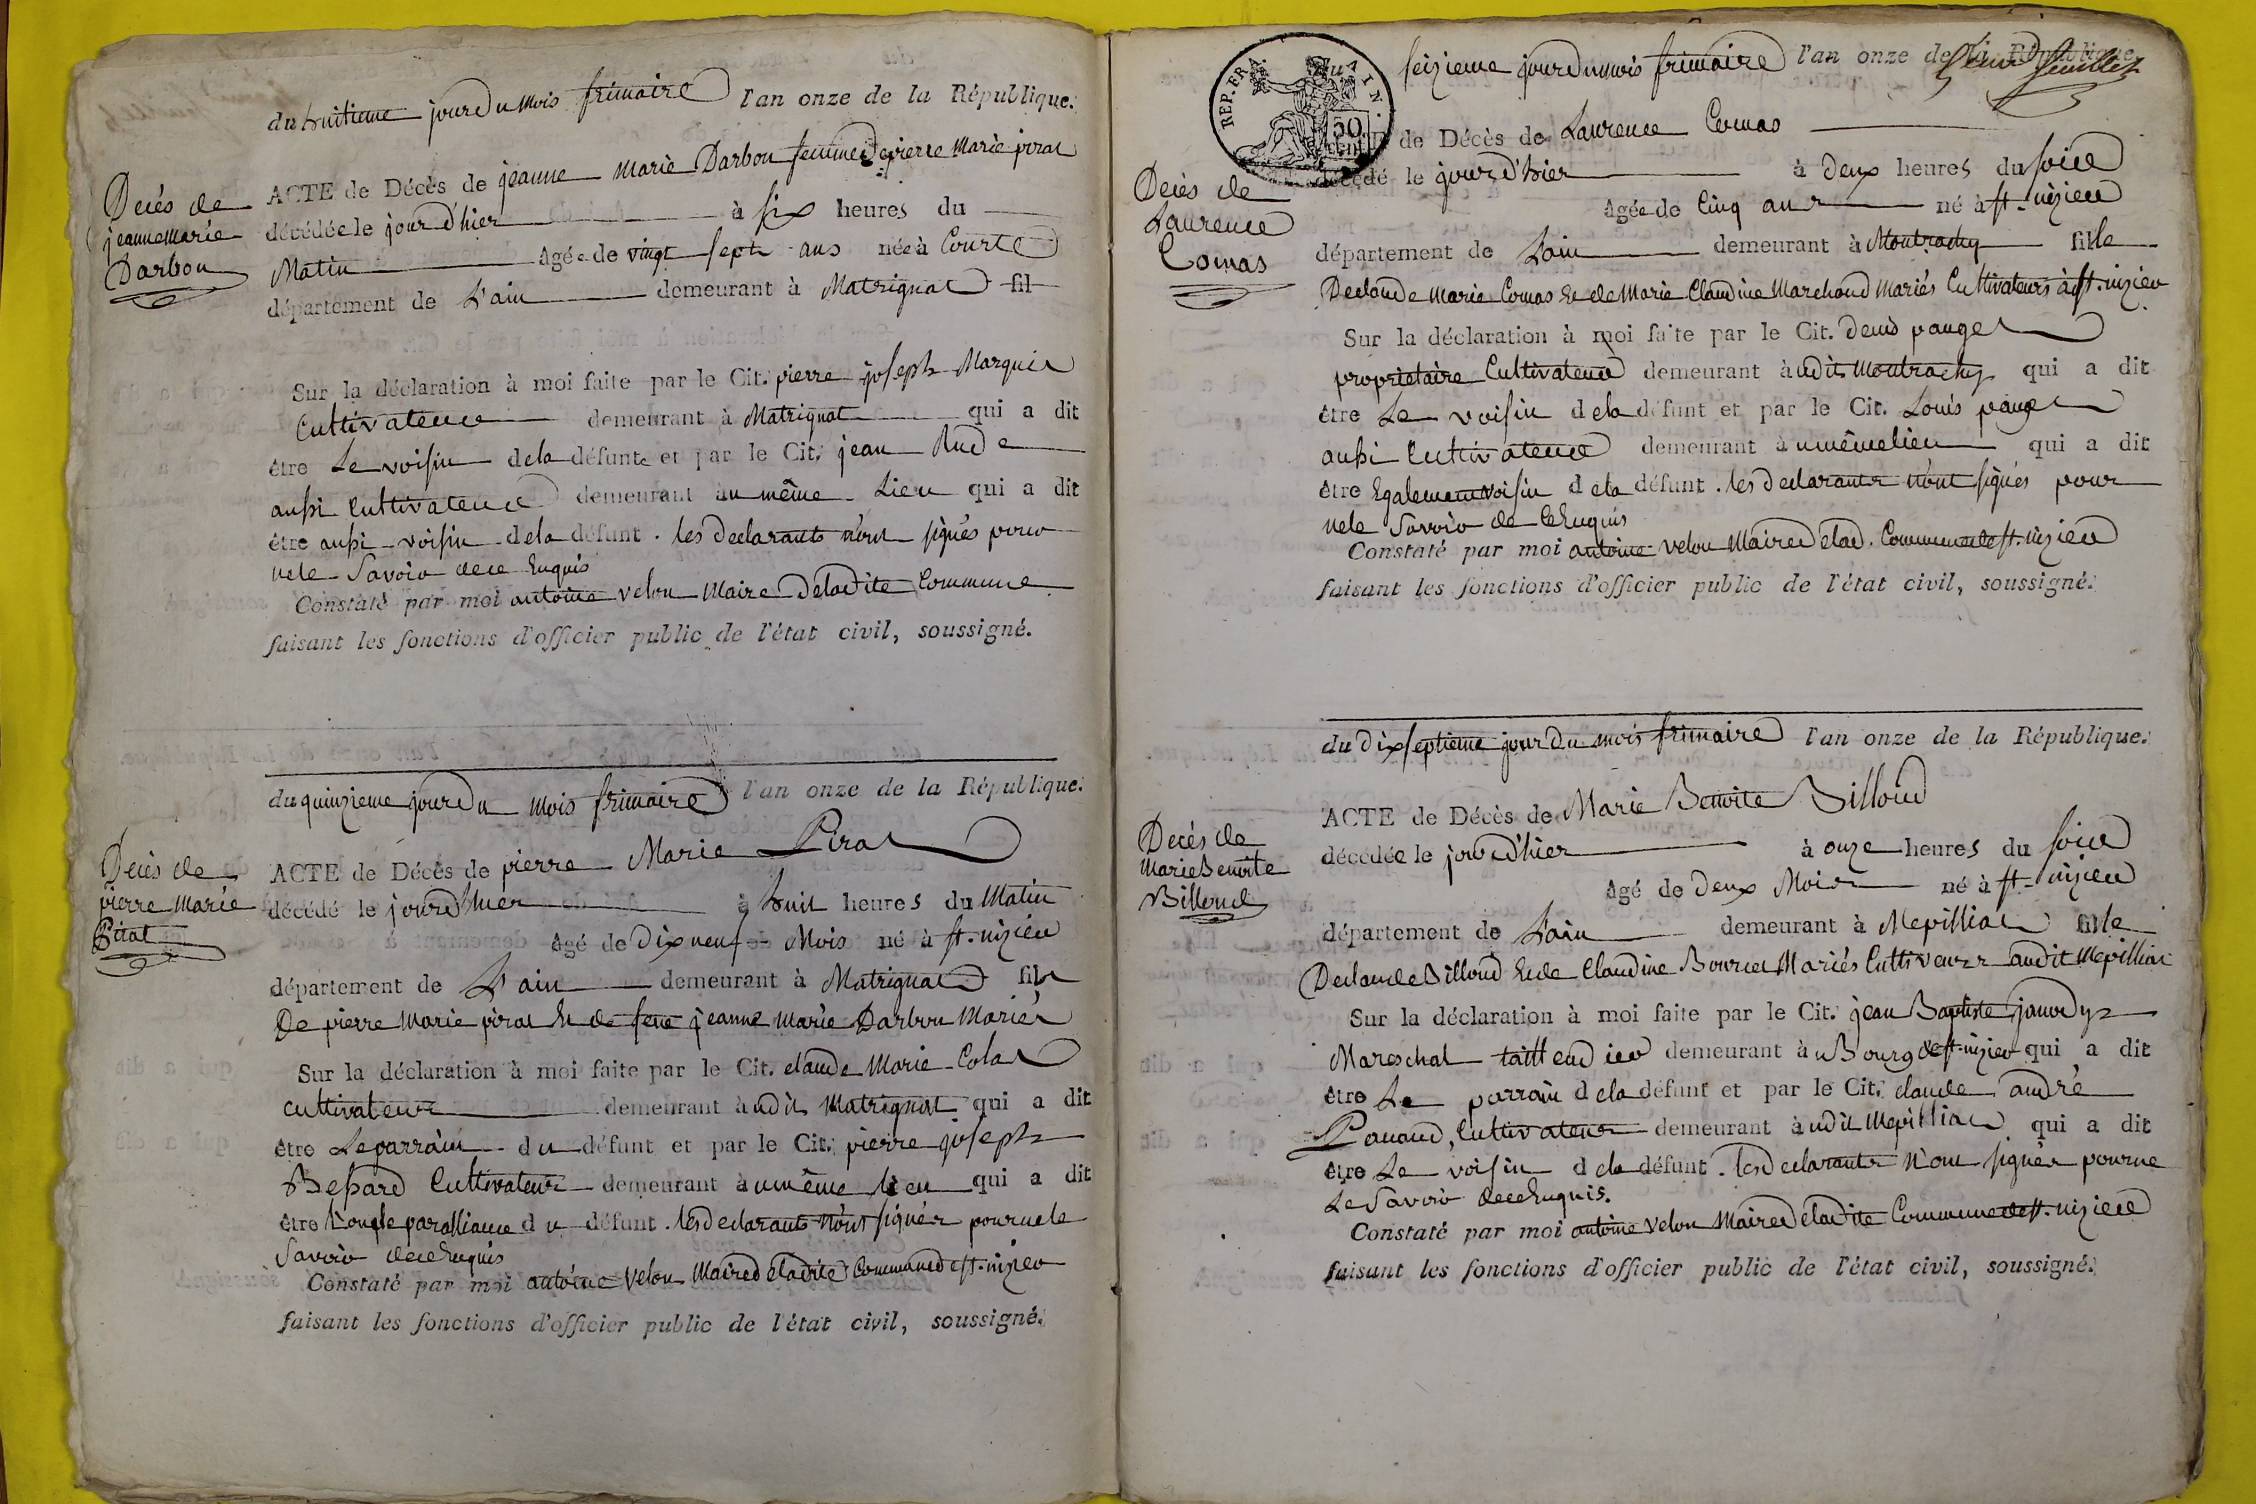 du huitieme jour du mois frimaire l'an onze de la République.
Decès de
jeanne marie
Darbon
ACTE de Décès de jeanne Marie Darbon femme de pierre Marie pirat
décédée le jour d'hier à six heures du
Matin âgée de vingt sept ans née à Courte
département de L'ain demeurant à Matrignat fil
Sur la déclaration à moi faite par le Cit. pierre joseph Marquis
Cultivateur demeurant à Matrignat qui a dit
être Le voisin de la défunte et par le Cit. jean Rude
aussi Cultivateur demeurant au même Lieu qui a dit
être aussi voisin de la défunt. les declarants n'ont signés pour
ne le Savoir de ce Enquis
Constaté par moi antoine velon Maire de la dite Commune
faisant les fonctions d'officier public de l'état civil, soussigné.
du quinzieme jour du mois frimaire l'an onze de la République.
Decès de
pierre Marie
Pirat
ACTE de Décès de pierre Marie Pirat
décédé le jour d'hier à huit heures du Matin
âgé de Dix neuf Mois né à st. nizier
département de L'ain demeurant à Matrignat fils
De pierre Marie pirat Et de feue jeanne marie Darbon Mariés
Sur la déclaration à moi faite par le Cit. claude Marie Colas
cultivateur demeurant audit Matrignat qui a dit
être Le parrain du défunt et par le Cit. pierre joseph
Bessard Cultivateur demeurant au même lieu qui a dit
être L'oncle par alliance du défunt. les declarants n'ont signés pour ne le
Savoir de ce Enquis
Constaté par moi antoine velon Maire de la dite Commune de st. nizier
faisant les fonctions d'officier public de l'état civil, soussigné.
REP. FRA. AIN
50 cent
seizieme jour du mois frimaire l'an onze de la République
feuillet
Decès de
Laurence
Comas
de Décès de Laurence Comas
décédé le jour d'hier à deux heures du soir
âgée de Cinq ans né à st. nizier
département de L'ain demeurant à Montrachy fille
De claude Marie Comas Et de Marie Claudine Marchand Mariés Cultivateurs à st. nizier
Sur la déclaration à moi faite par le Cit. denis pauget
proprietaire Cultivateur demeurant audit Montrachy qui a dit
être Le voisin de la défunt et par le Cit. Louis pauget
aussi Cultivateur demeurant au même lieu qui a dit
être Egalement voisin de la défunt. les declarants n'ont signés pour
ne le Savoir de ce Enquis
Constaté par moi antoine velon Maire de lad. Commune de st. nizier
faisant les fonctions d'officier public de l'état civil, soussigné.
du dix septieme jour du mois frimaire l'an onze de la République.
Decès de
Marie Benoite
Billoud
ACTE de Décès de Marie Benoite Billoud
décédée le jour d'hier à onze heures du soir
âgé de Deux Mois né à st. nizier
département de L'ain demeurant à Mepilliat fille
De claude Billoud Et de Claudine Bourcet Mariés Cultiveurs audit Mepilliat
Sur la déclaration à moi faite par le Cit. jean Baptiste jaudy
Mareschal taillendier demeurant au Bourg de st. nizier qui a dit
être Le parrain de la défunt et par le Cit. claude andré
Panaud, Cultivateur demeurant audit Mepilliat qui a dit
être Le voisin de la défunt. les declarants n'ont signés pour ne
Le Savoir de ce Enquis.
Constaté par moi antoine velon Maire de la dite Commune de st. nizier
faisant les fonctions d'officier public de l'état civil, soussigné.